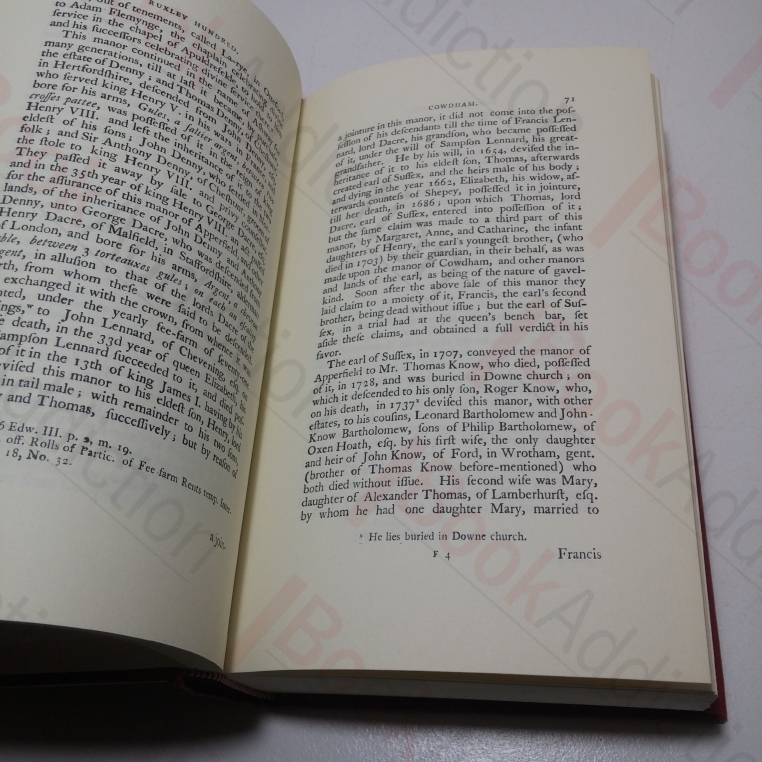 RUXLEY HUNDRED.
out of tenements, called Larkye, in Orpington
to Adam Flemynge, the chaplain, celebrating
service in the chapel of Apuldrefield,
and his succeſſors celebrating divine ſervice there
This manor continued in the name of
many generations, till at laſt it became
the eſtate of Denny; and Thomas Denny, of
in Hertfordſhire, deſcended from John Denny
who ſerved king Henry V. in his wars in France
bore for his arms, Gules, a ſaltier argent between
croſſes pattee, was poſſeſſed of it in the reign of
Henry VIII. and left the inheritance of it to
eldeſt of his ſons; John Denny, of
folk; and Sir Anthony Denny, of Cheſhunt,
the ſtole to king Henry VIII. and privy counſellor
They paſſed it away by ſale to George Dacre
and in the 35th year of king Henry VIII. an act paſſed
for the aſſurance of this manor of Apperfield, and
lands, of the inheritance of John Denny and Anthony
Denny, unto George Dacre, who was deſcended from
Henry Dacre, of Malfield, in Staffordſhire, alderman
of London, and bore for his arms, Argent, a chevron
ble, between 3 torteauxes gules; on each, an eſcallop
gent, in alluſion to that of the lord Dacre of
rth, from whom theſe were ſaid to be deſcended
exchanged it with the crown, from whence it was
nted, under the yearly fee-farm of ſeventeen
ings,* to John Lennard, of Chevening, eſq. on
ſe death, in the 33d year of queen Elizabeth, his
Sampſon Lennard ſucceeded to it, and died poſ-
of it in the 13th of king James I. having by his
viſed this manor to his eldeſt ſon, Henry, lord
in tail male; with remainder to his two ſons,
and Thomas, ſucceſſively; but by reaſon of
6 Edw. III. p. 2, m. 19.
off. Rolls of Partic. of Fee farm Rents temp. Inter.
18, No. 32.
a join-
COWDHAM. 71
a jointure in this manor, it did not come into the poſ-
ſeſſion of his deſcendants till the time of Francis Len-
nard, lord Dacre, his grandſon, who became poſſeſſed
of it, under the will of Sampſon Lennard, his great-
grandfather. He by his will, in 1654, deviſed the in-
heritance of it to his eldeſt ſon, Thomas, afterwards
created earl of Suſſex, and the heirs male of his body;
and dying in the year 1662, Elizabeth, his widow, af-
terwards counteſs of Shepey, poſſeſſed it in jointure,
till her death, in 1686; upon which Thomas, lord
Dacre, earl of Suſſex, entered into poſſeſſion of it;
but the ſame claim was made to a third part of this
manor, by Margaret, Anne, and Catharine, the infant
daughters of Henry, the earl's youngeſt brother, (who
died in 1703) by their guardian, in their behalf, as was
made upon the manor of Cowdham, and other manors
and lands of the earl, as being of the nature of gavel-
kind. Soon after the above ſale of this manor they
laid claim to a moiety of it, Francis, the earl's ſecond
brother, being dead without iſſue; but the earl of Suſ-
ſex, in a trial had at the queen's bench bar, ſet
aſide theſe claims, and obtained a full verdict in his
favor.
The earl of Suſſex, in 1707, conveyed the manor of
Apperfield to Mr. Thomas Know, who died, poſſeſſed
of it, in 1728, and was buried in Downe church; on
which it deſcended to his only ſon, Roger Know, who,
on his death, in 1737* deviſed this manor, with other
eſtates, to his couſins, Leonard Bartholomew and John
Know Bartholomew, ſons of Philip Bartholomew, of
Oxen Hoath, eſq. by his firſt wife, the only daughter
and heir of John Know, of Ford, in Wrotham, gent.
(brother of Thomas Know before-mentioned) who
both died without iſſue. His ſecond wife was Mary,
daughter of Alexander Thomas, of Lamberhurſt, eſq.
by whom he had one daughter Mary, married to
* He lies buried in Downe church.
F 4 Francis